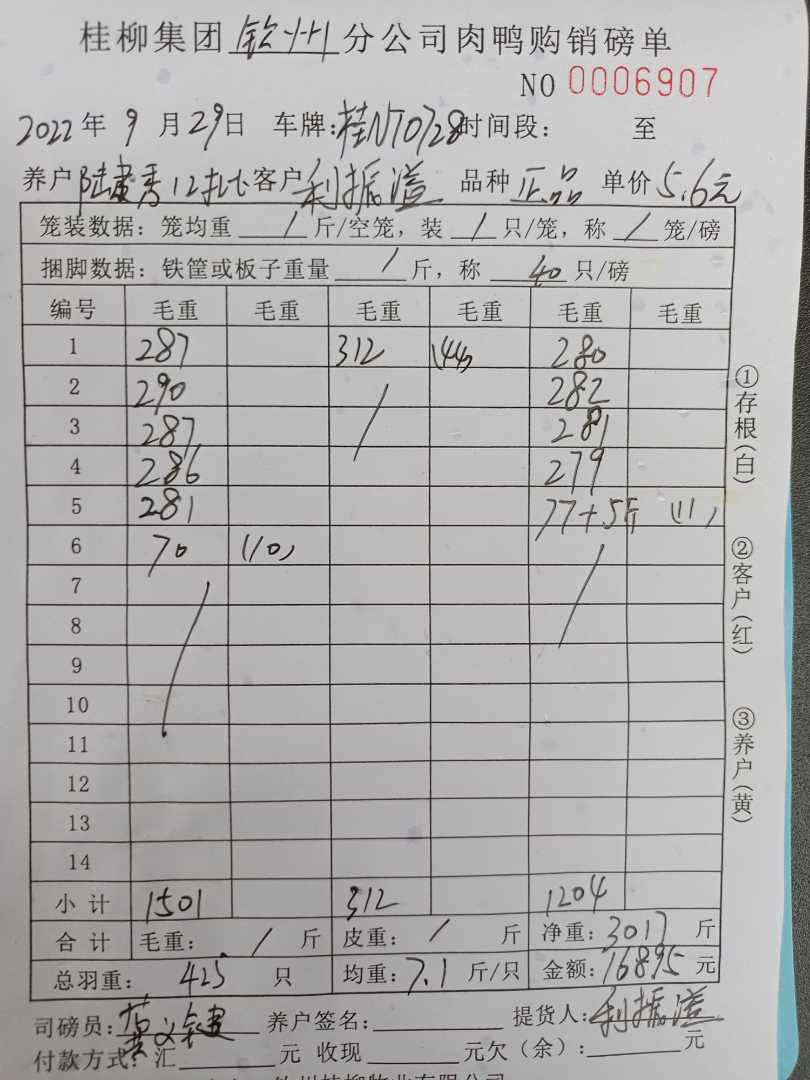 桂柳集团 钦州 分公司肉鸭购销磅单
NO 0006907
2022年 9月29日 车牌:桂NT0728 时间段: 至
养户 陆建秀12批 客户 利振溢 品种 正品 单价 5.6元
笼装数据: 笼均重 / 斤/空笼, 装 / 只/笼, 称 / 笼/磅
捆脚数据: 铁筐或板子重量 / 斤, 称 40 只/磅
编号 毛重 毛重 毛重 毛重 毛重 毛重
1 287 312 (44) 280
2 290 / 282
3 287 281
4 286 279
5 281 77+5斤 (11)
6 70 (10) /
7 /
8
9
10
11
12
13
14
小计 1501 312 1204
合计 毛重: / 斤 皮重: / 斤 净重: 3017 斤
总羽重: 425 只 均重: 7.1 斤/只 金额: 16895 元
司磅员: 养户签名: 提货人: 利振溢
付款方式: 汇 元 收现 元欠(余): 元
①存根(白)
②客户(红)
③养户(黄)